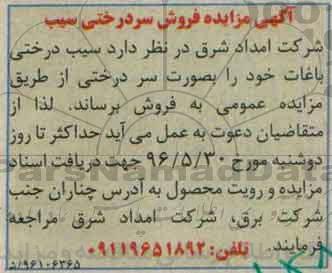 آگهی مزایده فروش سردرختی سیب
شرکت امداد شرق در نظر دارد سیب درختی
باغات خود را بصورت سر درختی از طریق
مزایده عمومی به فروش برساند. لذا از
متقاضیان دعوت به عمل می آید حداکثر تا روز
دوشنبه مورخ ۹۶/۵/۳۰ جهت دریافت اسناد
مزایده و رویت محصول به آدرس چناران جنب
شرکت برق، شرکت امداد شرق مراجعه
فرمایند. تلفن: ۰۹۱۱۹۶۵۱۸۹۲
۹۶۱۰۶۳۶۵/د
ParsNamadData